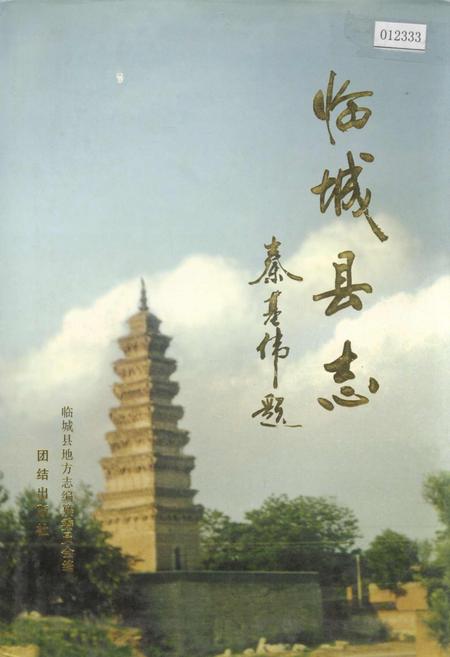 012333
临城县志
秦基伟题
临城县地方志编纂委员会编
团结出版社